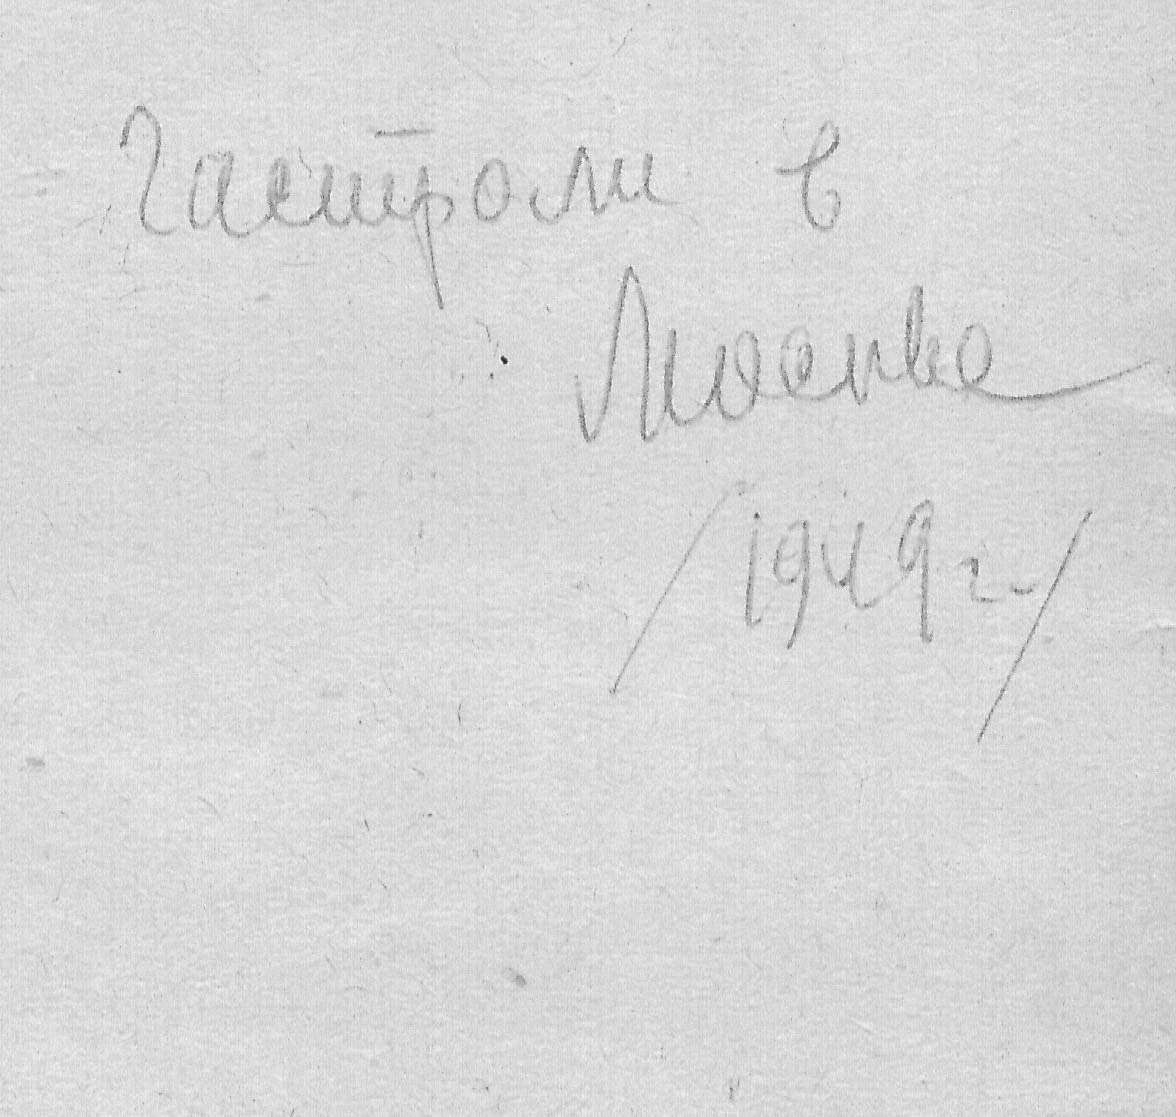 Гастроли в
Москве
/1949 г./